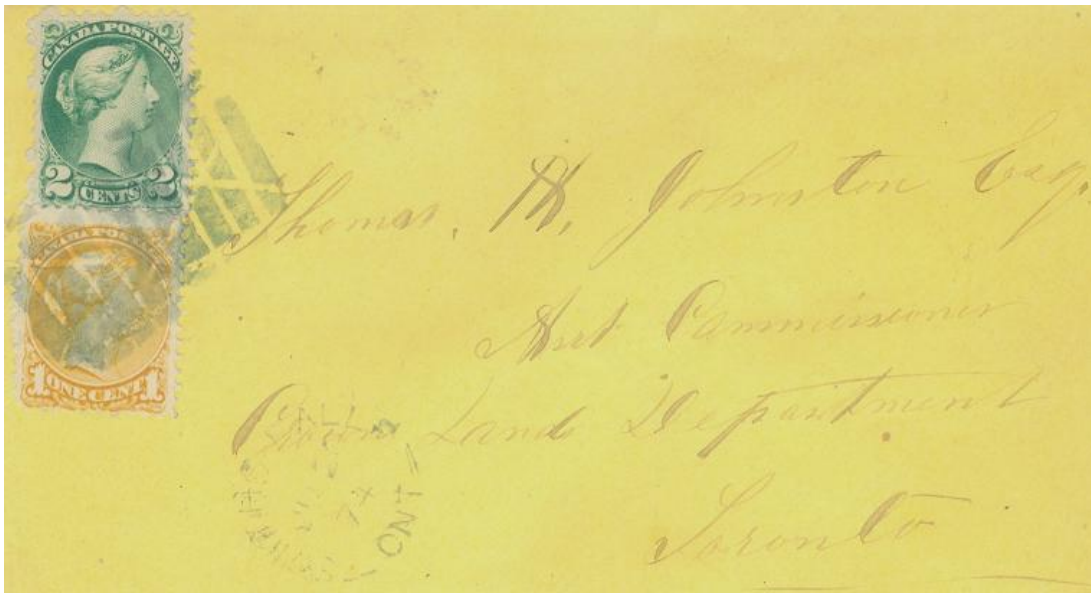 CANADA POSTAGE
2 CENTS 2
CANADA POSTAGE
1 ONE CENT 1
Thomas. H. Johnston Esq
Asst Commissioner
Crown Land Department
Toronto
ONT